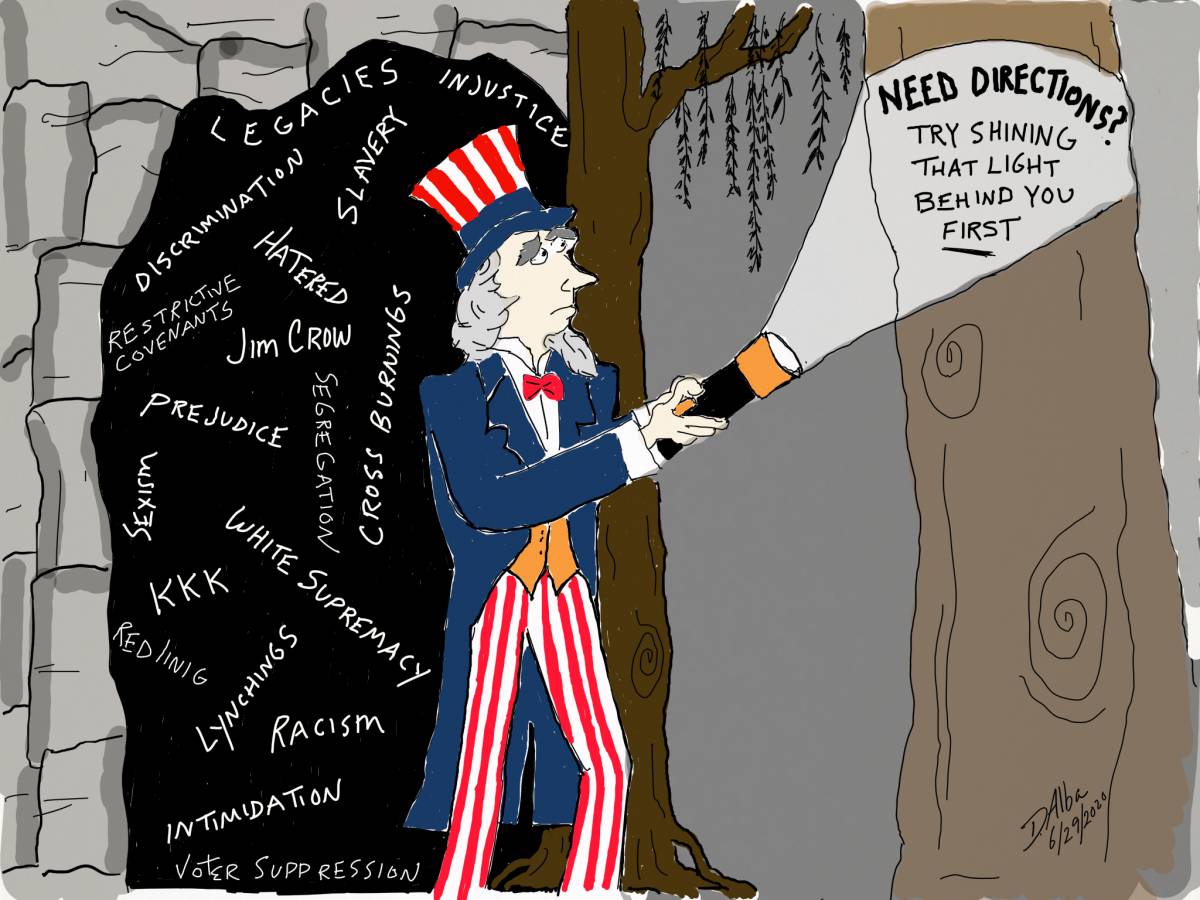 LEGACIES
INJUSTICE
SLAVERY
DISCRIMINATION
HATERED
RESTRICTIVE
COVENANTS
Jim CROW
CROSS BURNINGS
SEGREGATION
PREJUDICE
SEXISM
WHITE SUPREMACY
KKK
REDlINIG
LYNCHINGS
RACISM
INTIMIDATION
VOTER SUPPRESSION
NEED DIRECTIONS?
TRY SHINING
THAT LIGHT
BEHIND YOU
FIRST
D.Alba
6/29/2020